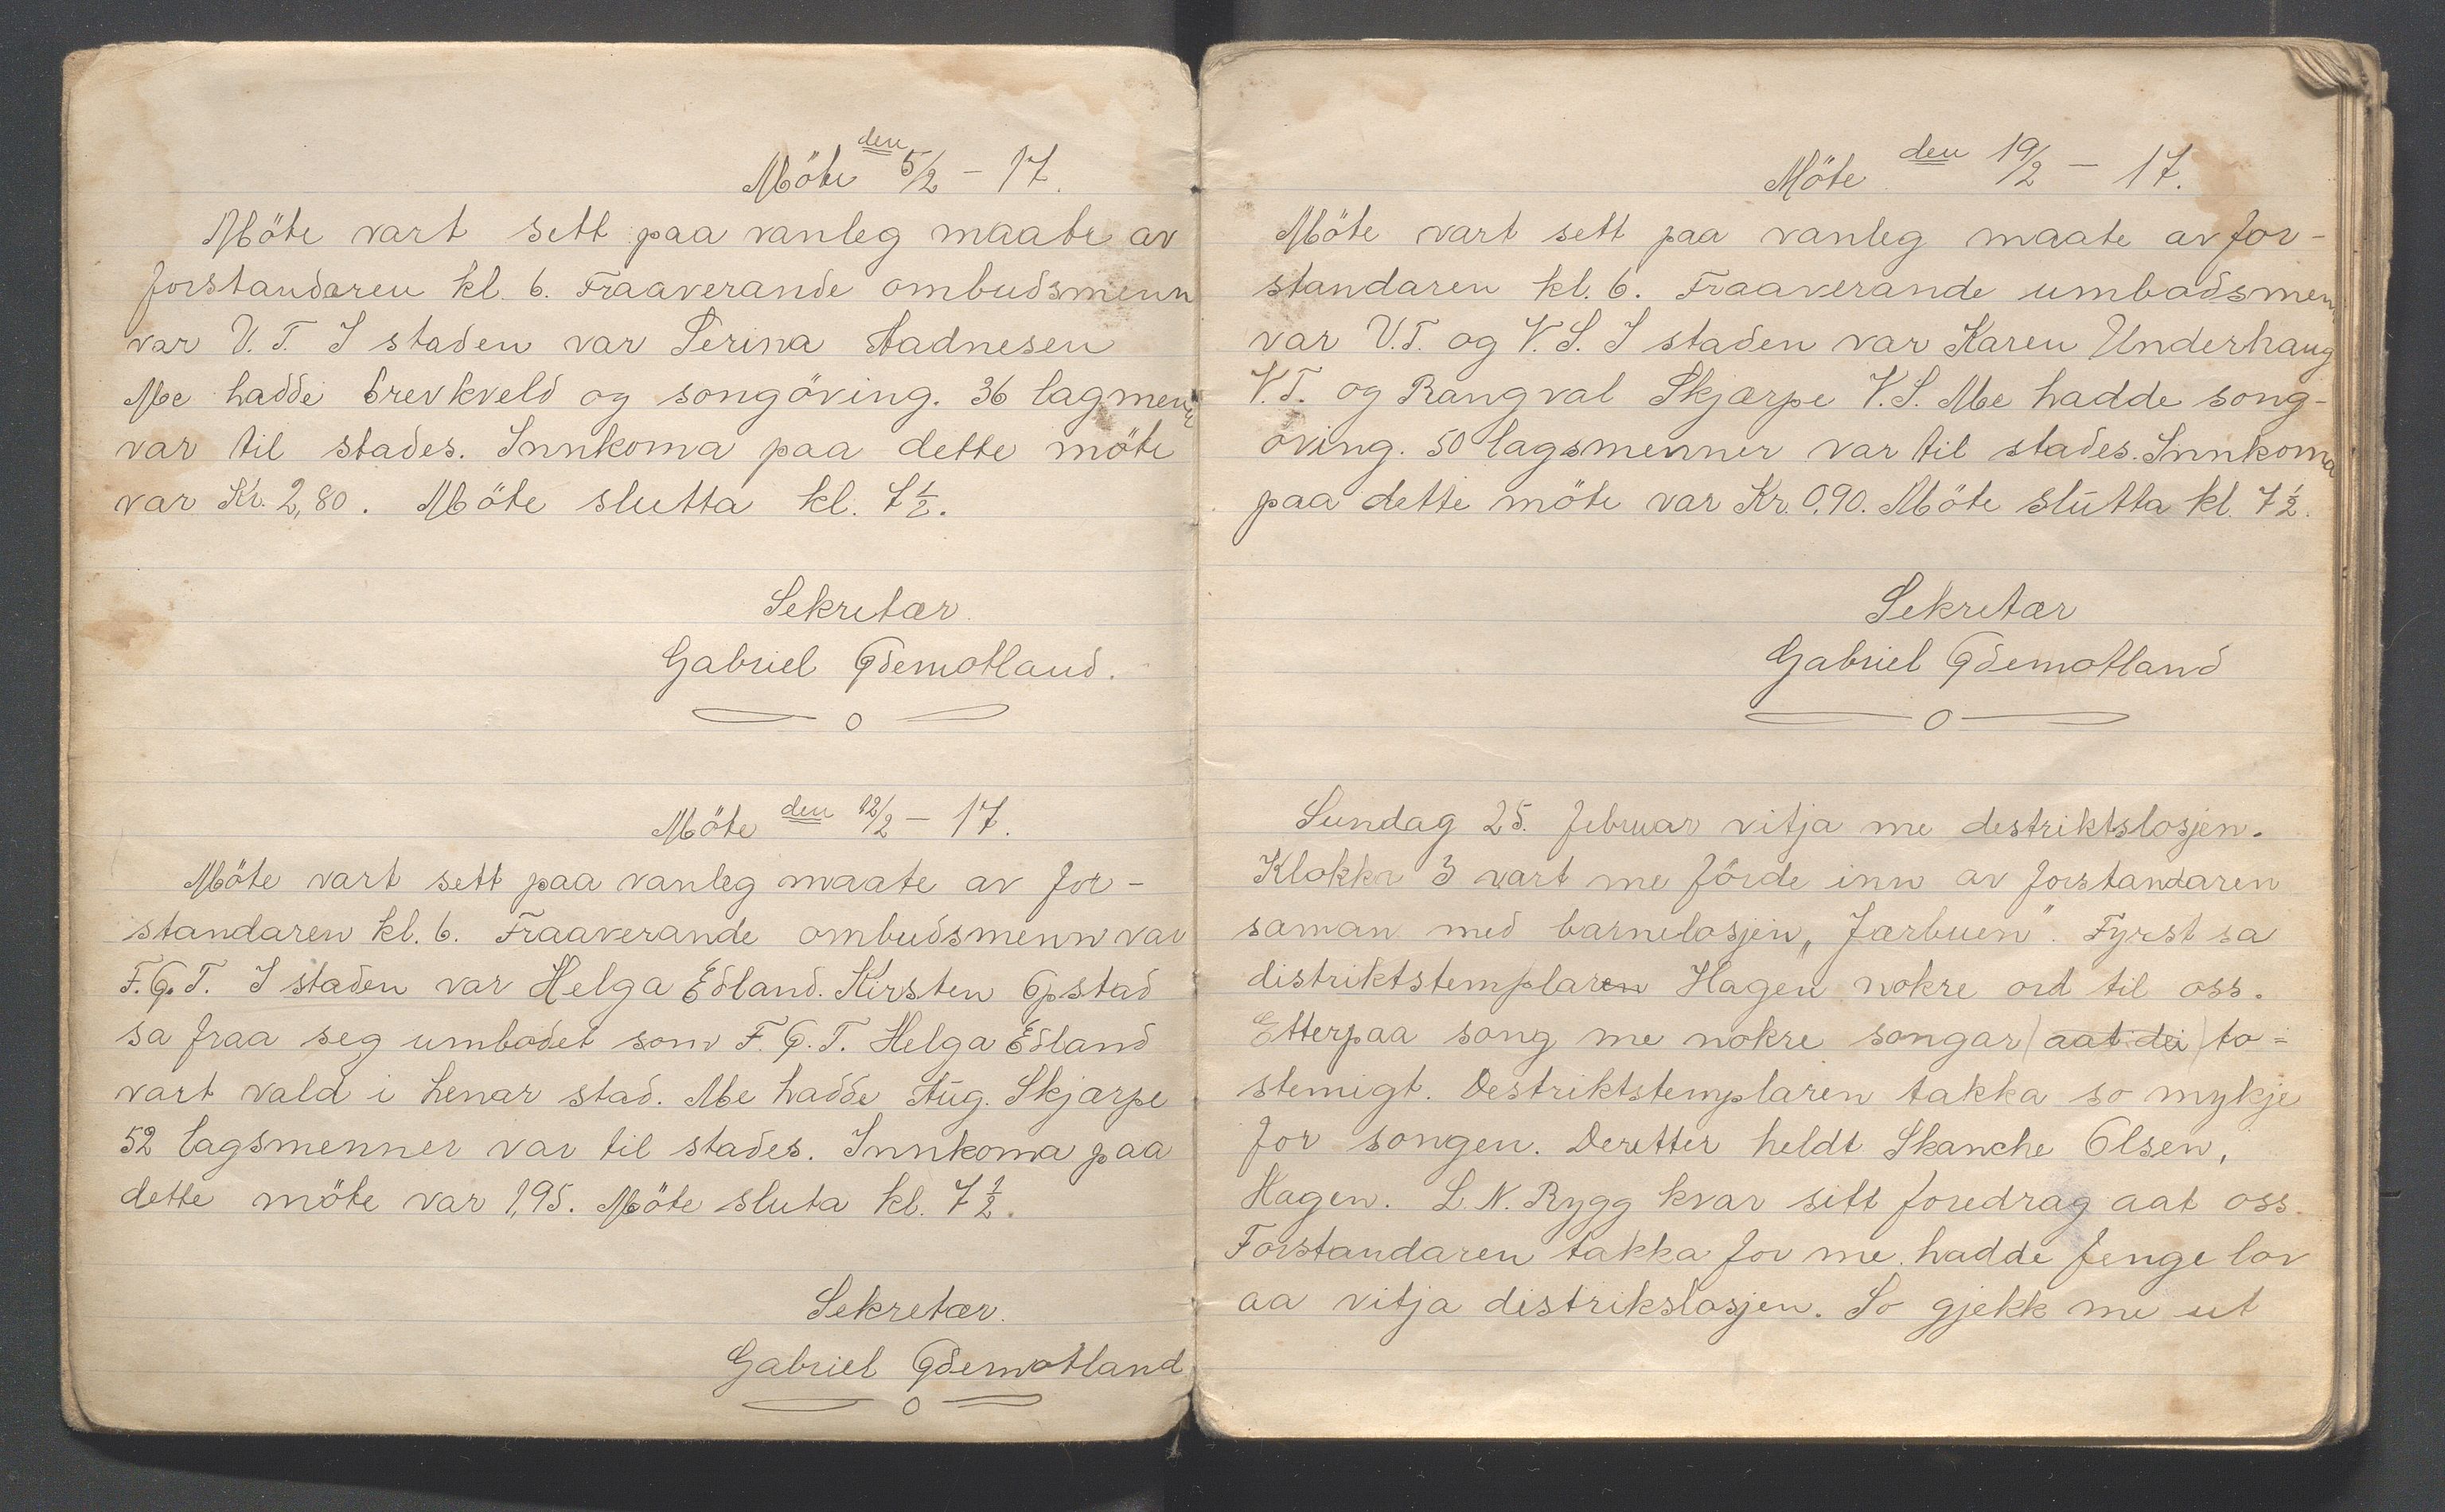 Möte den 5/2 - 17.
Möte vart sett paa vanleg maate av
forstandaren kl. 6. Fraaverande ombudsmenn
var V. T. I staden var Serina Stadnesen
Me hadde brevkveld og songöving. 36 lagmenn
var til stades. Innkoma paa dette möte
var Kr. 2,80. Möte slutta kl. 7½.
Sekretær.
Gabriel Ødemotland.
Möte den 12/2 - 17.
Möte vart sett paa vanleg maate av for-
standaren kl. 6. Fraaverande ombudsmenn var
F. Ø. T. I staden var Helga Edland. Kirsten Opstad
sa fraa seg umbodet som F. Ø. T. Helga Edland
vart vald i henar stad. Me hadde Aug. Skjærpe
52 lagsmenner var til stades. Innkoma paa
dette möte var 1,95. Möte sluta kl. 7½.
Sekretær.
Gabriel Ødemotland
Möte den 19/2 - 17.
Möte vart sett paa vanleg maate av for-
standaren kl. 6. Fraaverande umbodsmenn
var V.T. og V. S. I staden var Karen Underhaug
V.T. og Rangval Skjærpe V.S. Me hadde song-
öving. 50 lagsmenner var til stades. Innkoma
paa dette möte var Kr. 0,90. Möte slutta kl. 7½.
Sekretær
Gabriel Ødemotland
Sundag 25. februar vitja me destriktslosjen.
Klokka 3 vart me förde inn av forstandaren
saman med barnelosjen „Jærbuen". Fyrst sa
distriktstemplaren Hagen nokre ord til oss.
Etterpaa song me nokre songar (aat dei) to-
stemigt. Destriktstemplaren takka so mykje
for songen. Deretter heldt Skanche Olsen,
Hagen. L. N. Rygg kvar sitt foredrag aat oss.
Forstandaren takka for me hadde fenge lov
aa vitja distrikslosjen. So gjekk me ut